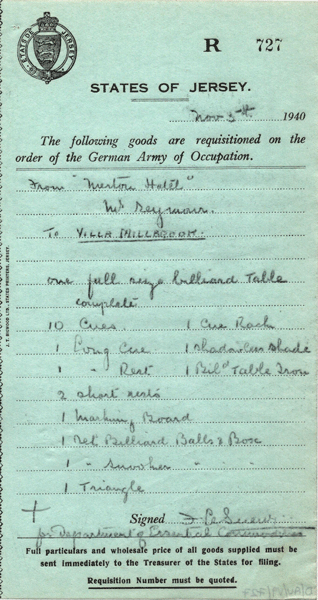 STATES OF JERSEY
R 727
STATES OF JERSEY.
Nov 5th 1940
The following goods are requisitioned on the
order of the German Army of Occupation.
From "Merton Hotel"
Mr Seymour.
To VILLA MILLBROOK.
one full size billiard Table
complete
10 Cues 1 Cue Rack
1 Long Cue 1 Shadowless Shade
1 " Rest 1 Bild Table Iron
2 short rests
1 Marking Board
1 Set Billiard Balls & Box
1 " Snooker "
1 Triangle
Signed
for Department of Essential Commodities
Full particulars and wholesale price of all goods supplied must be
sent immediately to the Treasurer of the States for filing.
Requisition Number must be quoted.